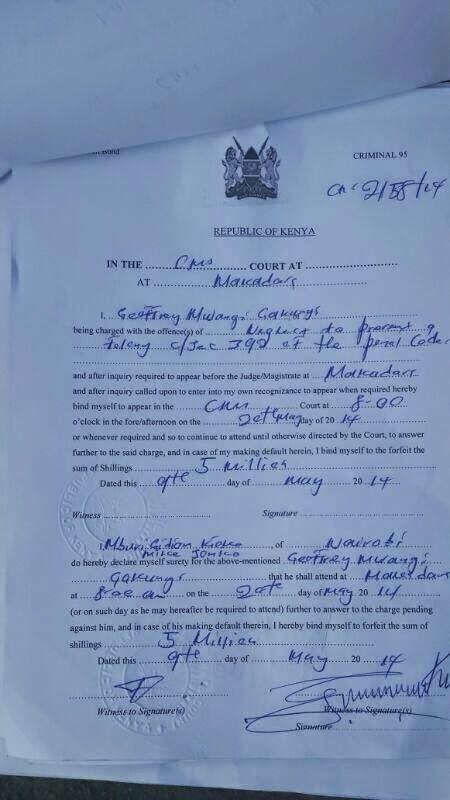 CRIMINAL 95
REPUBLIC OF KENYA
IN THE COURT AT
AT Makadara
I, Geoffrey Mwangi
being charged with the offence(s) of Neglect to prevent a
felony c/sec 392 of the penal code
and after inquiry required to appear before the Judge/Magistrate at Makadara
and after inquiry called upon to enter into my own recognizance to appear when required hereby
bind myself to appear in the CMs Court at 8-00
o'clock in the fore/afternoon on the 20th May day of 2014
or whenever required and so to continue to attend until otherwise directed by the Court, to answer
further to the said charge, and in case of my making default herein, I bind myself to the forfeit the
sum of Shillings 5 Million
Dated this 9th day of May 2014
Witness Signature
I, of Nairobi
do hereby declare myself surety for the above-mentioned Geoffrey Mwangi
that he shall attend at
at 8.00 on the day of May 2014
(or on such day as he may hereafter be required to attend) further to answer to the charge pending
against him, and in case of his making default therein, I hereby bind myself to forfeit the sum of
shillings 5 Million
Dated this 9th day of May 2014
Witness to Signature(s) Witness to Signature(s)
Signature